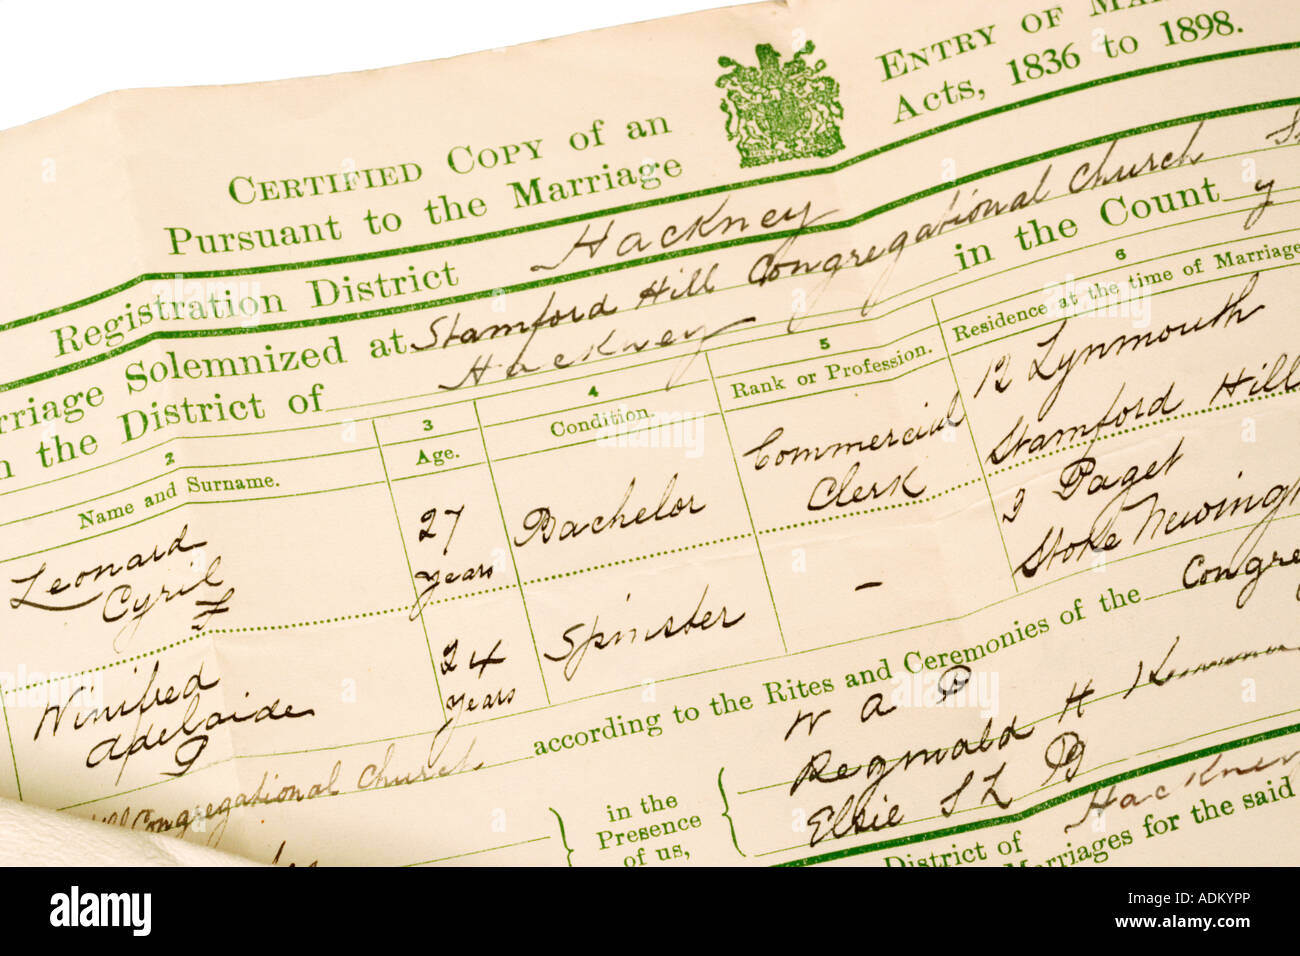 CERTIFIED COPY of an ENTRY OF
Pursuant to the Marriage Acts, 1836 to 1898.
Registration District Hackney
Marriage Solemnized at Stamford Hill Congregational Church
in the District of Hackney in the County
2 3 4 5 6
Name and Surname. Age. Condition. Rank or Profession. Residence at the time of Marriage
Leonard Cyril 27 years Bachelor Commercial Clerk 12 Lynmouth
Stamford Hill
Winifred Adelaide 24 years Spinster — Paget
Stoke Newington
Congregational Church according to the Rites and Ceremonies of the
W A P
in the Presence of us, Reginald H
Elsie S L
District of Hackney
Marriages for the said
alamy
Image ID: ADKYPP
www.alamy.com